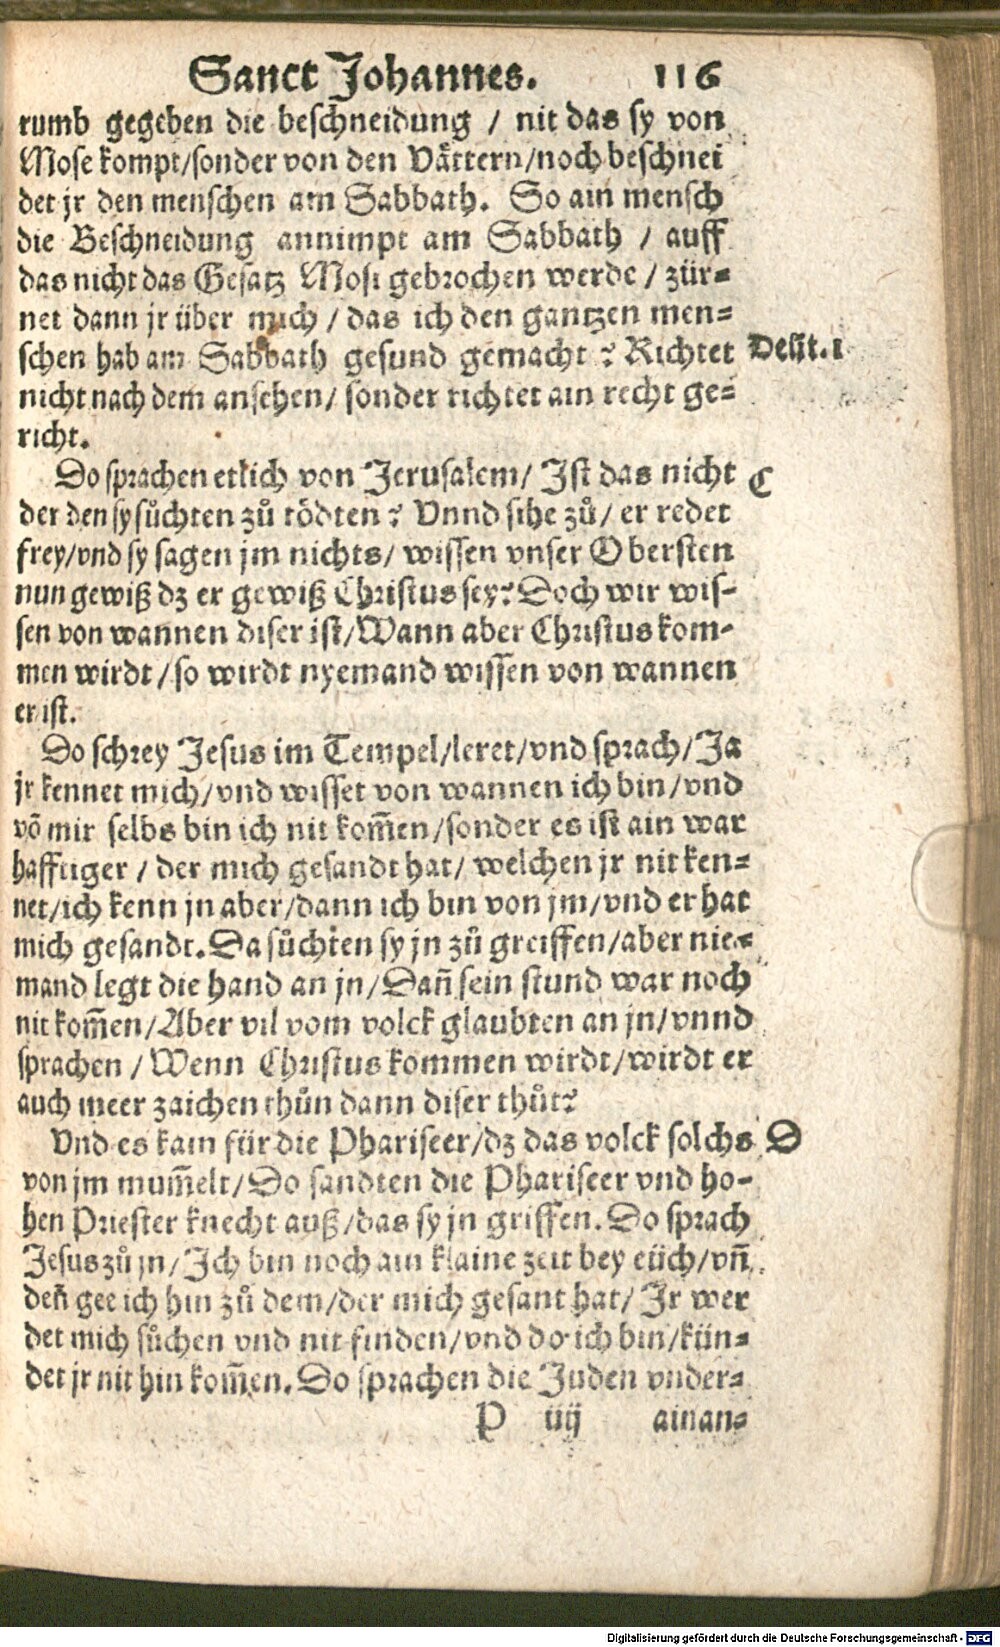 Sanct Johannes. 116
rumb gegeben die beschneidung / nit das sy von
Mose kompt/sonder von den Vättern/noch beschnei
det jr den menschen am Sabbath. So ain mensch
die Beschneidung annimpt am Sabbath / auff
das nicht das Gesatz Mosi gebrochen werde / zür=
net dann jr über mich / das ich den gantzen men=
schen hab am Sabbath gesund gemacht? Richtet
Deüt.1
nicht nach dem ansehen/ sonder richtet ain recht ge=
richt.
Do sprachen etlich von Jerusalem/ Ist das nicht
C
der den sy sůchten zů tödten? Vnnd sihe zů/ er redet
frey/vnd sy sagen jm nichts/ wissen vnser Obersten
nun gewiß dz er gewiß Christus sey? Doch wir wis-
sen von wannen diser ist/Wann aber Christus kom-
men wirdt/so wirdt nyemand wissen von wannen
er ist.
Do schrey Jesus im Tempel/leret/vnd sprach/Ja
jr kennet mich/vnd wisset von wannen ich bin/vnd
võ mir selbs bin ich nit kom̃en/sonder es ist ain war
hafftiger / der mich gesandt hat/ welchen jr nit ken=
net/ich kenn jn aber/dann ich bin von jm/vnd er hat
mich gesandt. Da sůchten sy jn zů greiffen/aber nie=
mand legt die hand an jn/Dañ sein stund war noch
nit kom̃en/Aber vil vom volck glaubten an jn/vnnd
sprachen / Wenn Christus kommen wirdt/wirdt er
auch meer zaichen thůn dann diser thůt?
Vnd es kam für die Phariseer/dz das volck solchs
D
von jm mum̃elt/Do sandten die Phariseer vnd ho-
hen Priester knecht auß/das sy jn griffen. Do sprach
Jesus zů jn/Ich bin noch ain klaine zeit bey eüch/vñ
deñ gee ich hin zů dem/der mich gesant hat/ Ir wer
det mich sůchen vnd nit finden/vnd do ich bin/kün=
det jr nit hin kom̃en. Do sprachen die Juden vnder=
P iiij ainan=
Digitalisierung gefördert durch die Deutsche Forschungsgemeinschaft - DFG